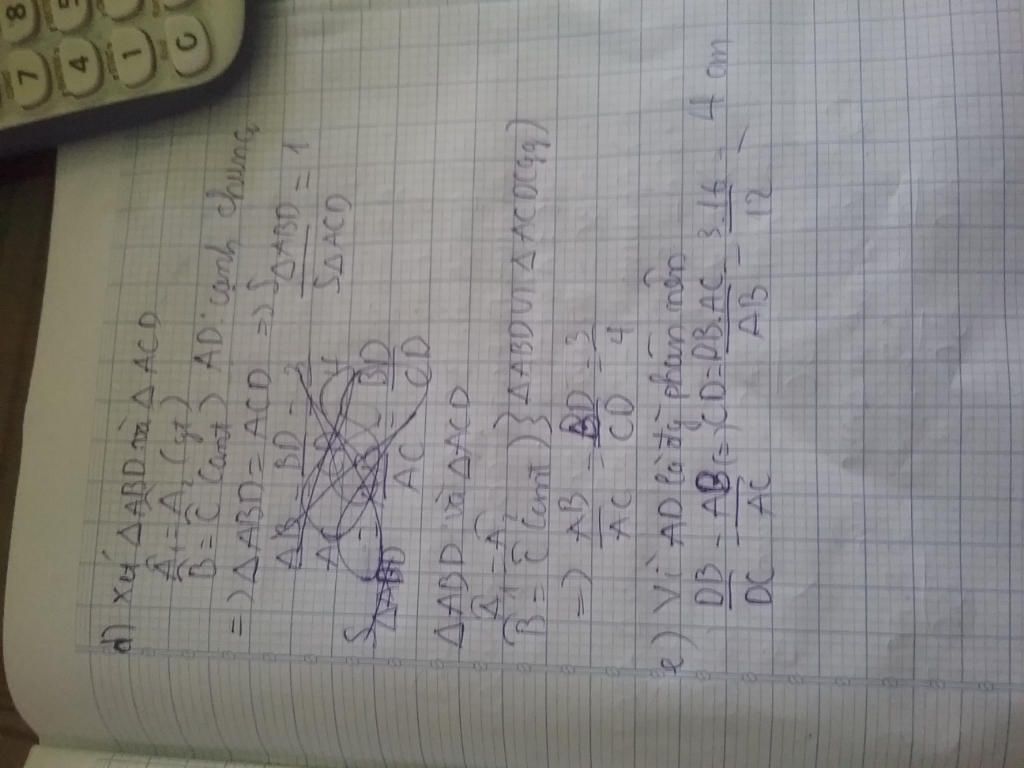 d) xét ΔABD và ΔACD
Â₁ = Â₂ (gt)
B̂ = Ĉ (cmt) AD: cạnh chung
=) ΔABD = ACD =) SΔABD / SΔACD = 1
ΔABD và ΔACD
Â₁ = Â₂
B̂ = Ĉ (cmt) } ΔABD ∽ ΔACD (gg)
=) AB / AC = BD / CD = 3 / 4
e) Vì AD là đg phân nên
DB / DC = AB / AC =) CD = DB.AC / AB = 3.16 / 12 = 4 cm
7
8
4
5
1
C